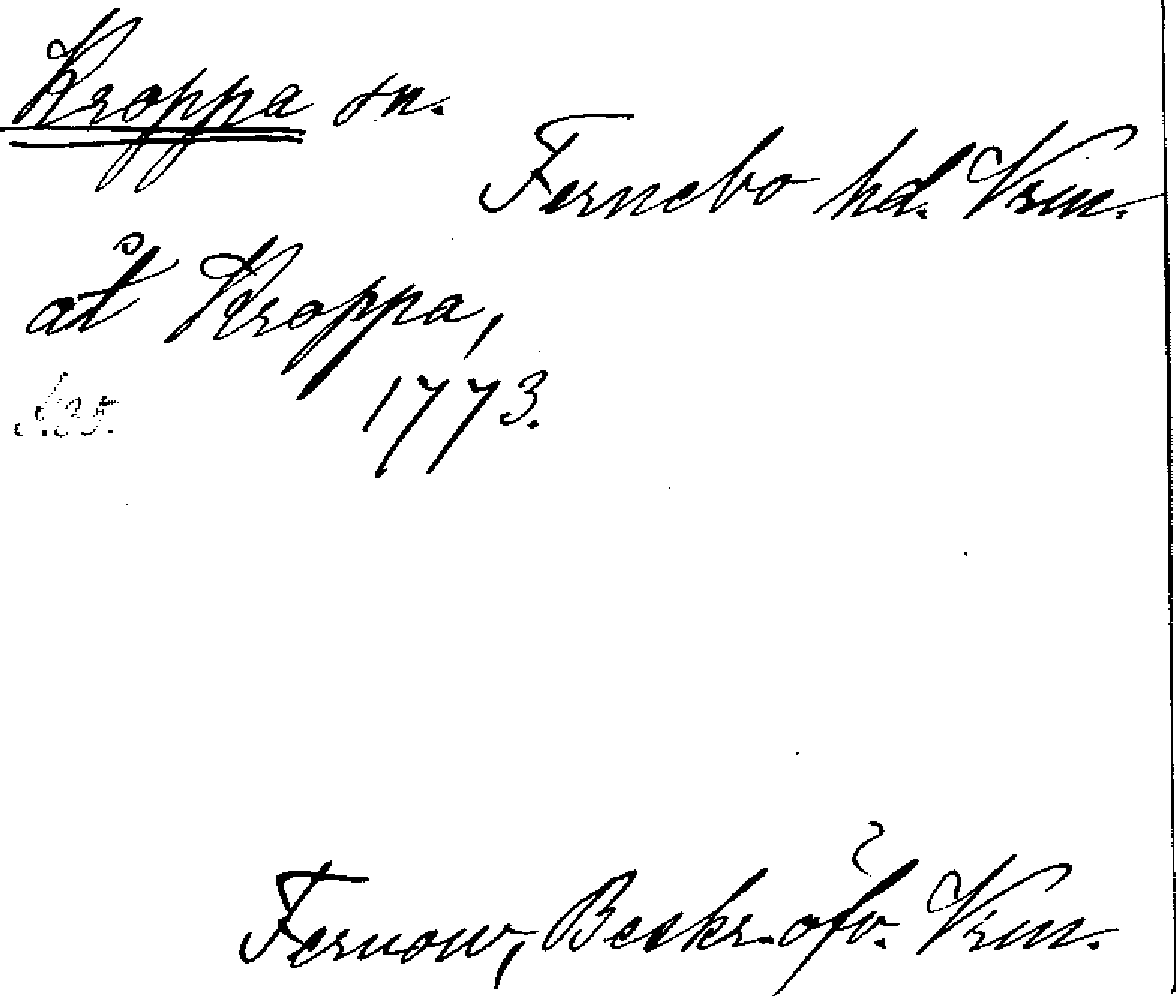 Kroppa sn.
Fernebo hd. Vrm.
åt Kroppa,
1773.
Fernow, Beskr. öfv. Vrm.